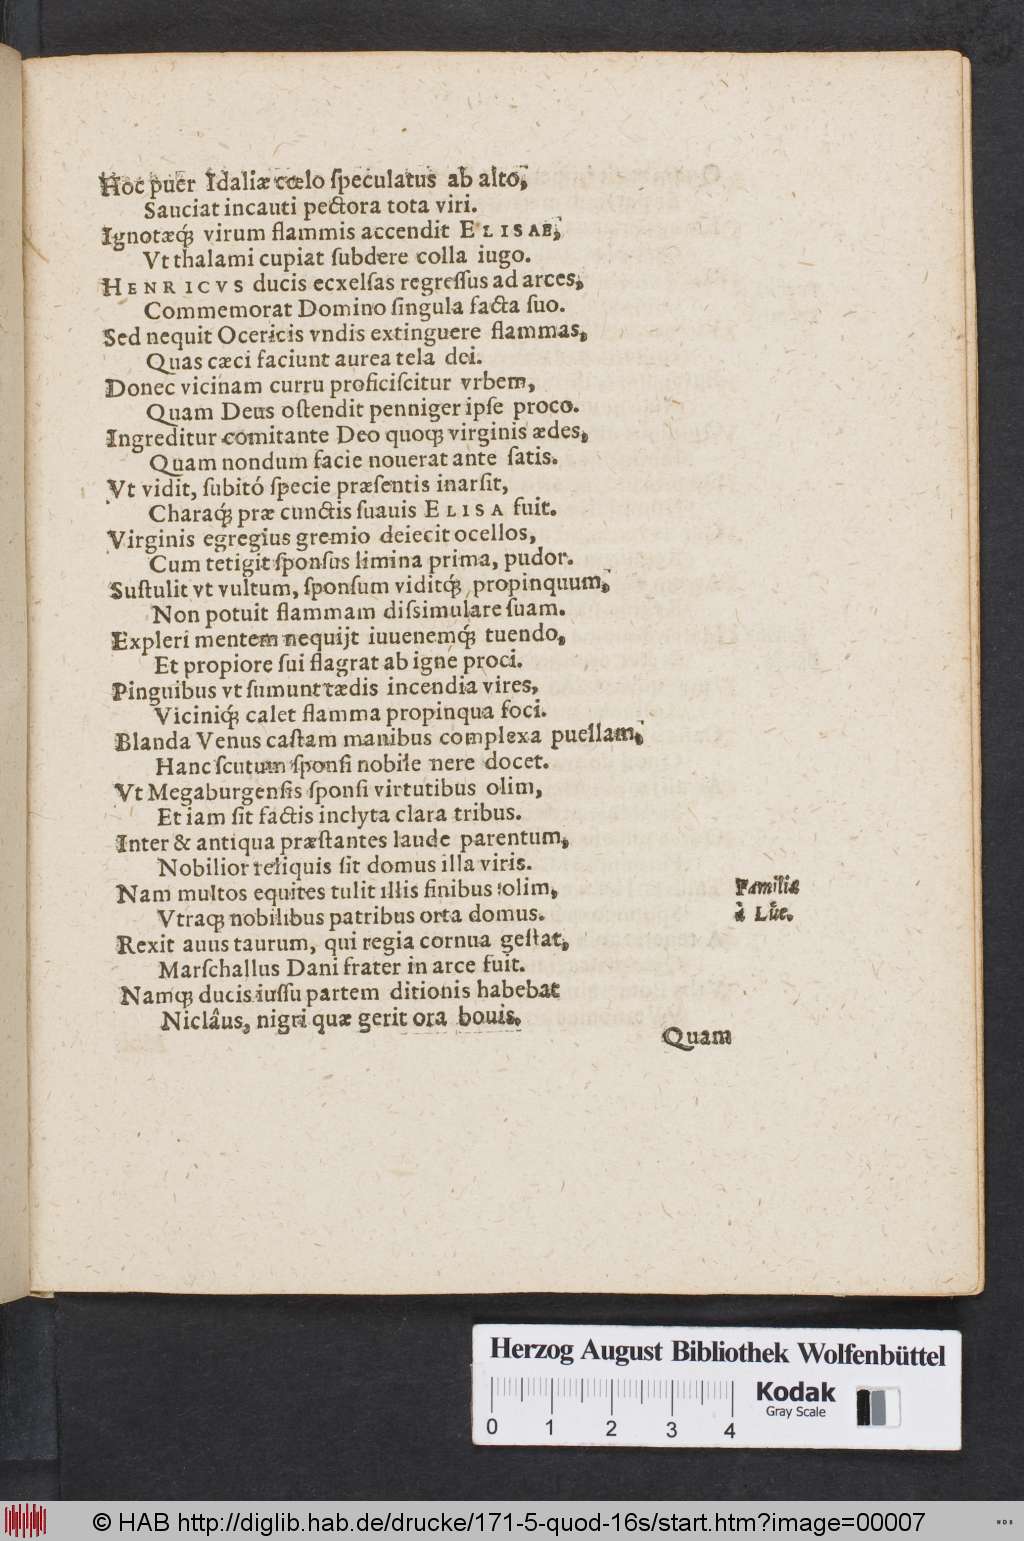 Hoc puer Idaliæ cœlo ſpeculatus ab alto,
Sauciat incauti pectora tota viri.
Ignotæq́; virum flammis accendit ELISAE,
Vt thalami cupiat ſubdere colla iugo.
HENRICVS ducis ecxelſas regreſſus ad arces,
Commemorat Domino ſingula facta ſuo.
Sed nequit Ocericis vndis extinguere flammas,
Quas cæci faciunt aurea tela dei.
Donec vicinam curru proficiſcitur vrbem,
Quam Deus oſtendit penniger ipſe proco.
Ingreditur comitante Deo quoq; virginis ædes,
Quam nondum facie nouerat ante ſatis.
Vt vidit, ſubitó ſpecie præſentis inarſit,
Charaq́; præ cunctis ſuauis ELISA fuit.
Virginis egregius gremio deiecit ocellos,
Cum tetigit ſponſus limina prima, pudor.
Suſtulit vt vultum, ſponſum viditq́; propinquum,
Non potuit flammam diſsimulare ſuam.
Expleri mentem nequijt iuuenemq́; tuendo,
Et propiore ſui flagrat ab igne proci.
Pinguibus vt ſumunt tædis incendia vires,
Viciniq́; calet flamma propinqua foci.
Blanda Venus caſtam manibus complexa puellam,
Hanc ſcutum ſponſi nobile nere docet.
Vt Megaburgenſis ſponſi virtutibus olim,
Et iam ſit factis inclyta clara tribus.
Inter & antiqua præſtantes laude parentum,
Nobilior reliquis ſit domus illa viris.
Nam multos equites tulit illis finibus olim,
Vtraq; nobilibus patribus orta domus.
Familiæ
à Lüe.
Rexit auus taurum, qui regia cornua geſtat,
Marſchallus Dani frater in arce fuit.
Namq; ducis iuſſu partem ditionis habebat
Niclâus, nigri quæ gerit ora bouis.
Quam
Herzog August Bibliothek Wolfenbüttel
Kodak
Gray Scale
0 1 2 3 4
© HAB http://diglib.hab.de/drucke/171-5-quod-16s/start.htm?image=00007